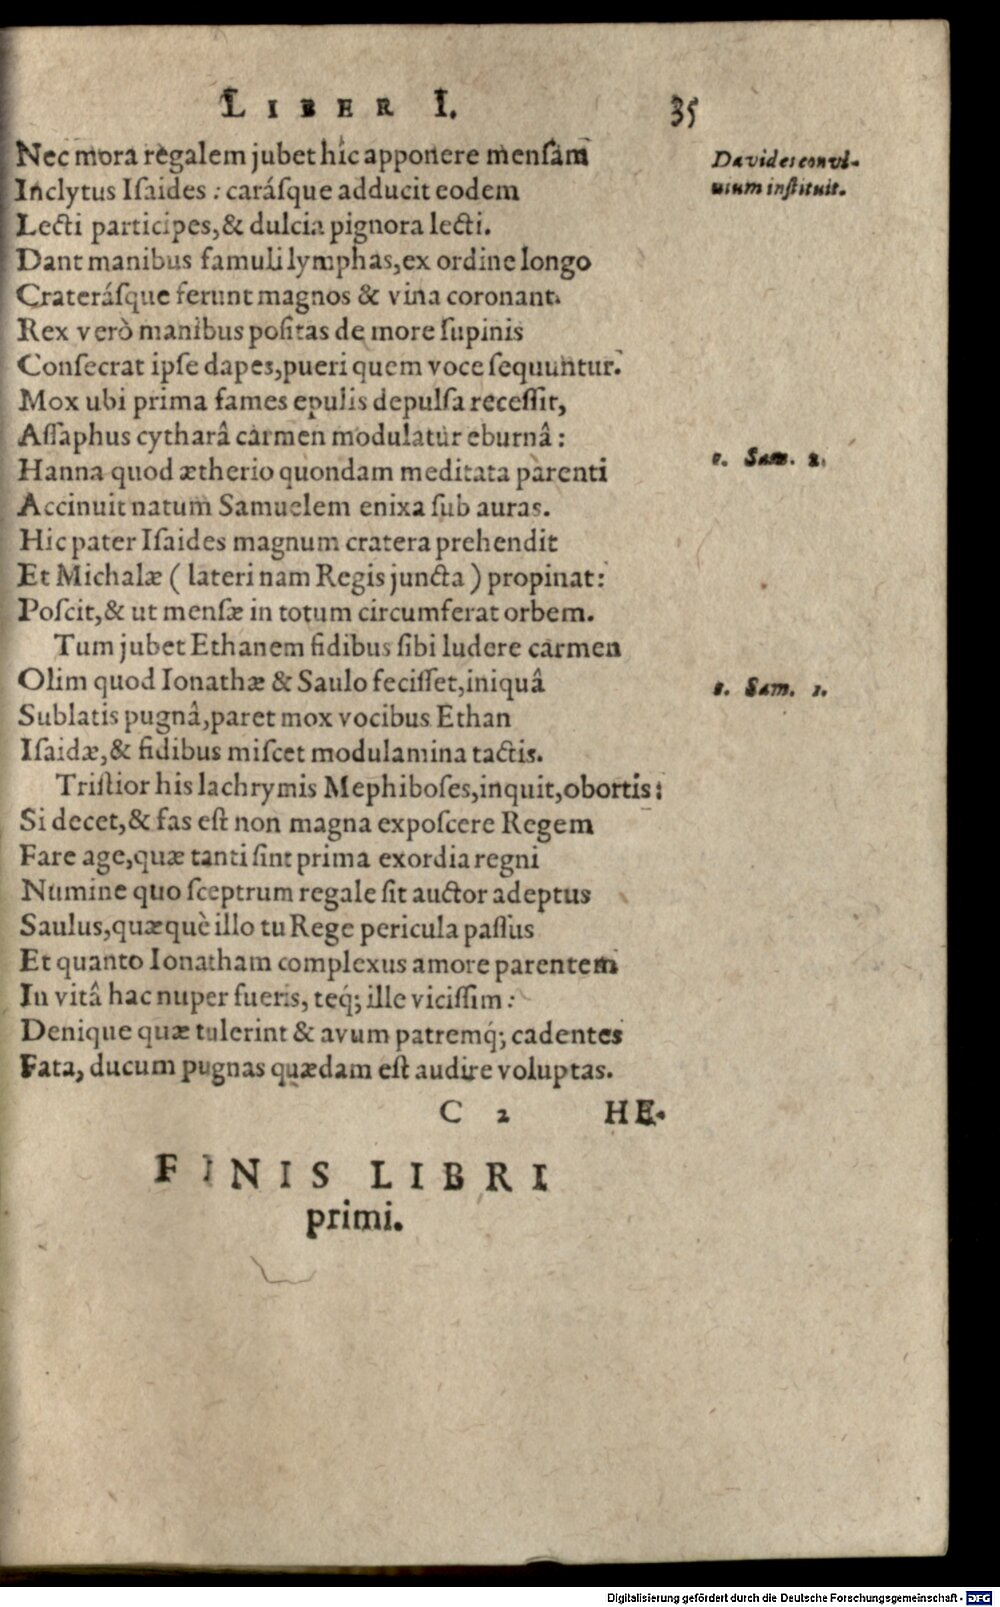 LIBER I. 35
Nec mora regalem jubet hîc apponere mensam
Inclytus Isaides : carásque adducit eodem
Lecti participes, & dulcia pignora lecti.
Dant manibus famuli lymphas, ex ordine longo
Craterásque ferunt magnos & vina coronant.
Rex verò manibus positas de more supinis
Consecrat ipse dapes, pueri quem voce sequuntur.
Mox ubi prima fames epulis depulsa recessit,
Assaphus cytharâ carmen modulatur eburnâ :
Hanna quod ætherio quondam meditata parenti
Accinuit natum Samuelem enixa sub auras.
Hic pater Isaides magnum cratera prehendit
Et Michalæ ( lateri nam Regis juncta ) propinat:
Poscit, & ut mensæ in totum circumferat orbem.
Tum jubet Ethanem fidibus sibi ludere carmen
Olim quod Ionathæ & Saulo fecisset, iniquâ
Sublatis pugnâ, paret mox vocibus Ethan
Isaidæ, & fidibus miscet modulamina tactis.
Tristior his lachrymis Mephiboses, inquit, obortis:
Si decet, & fas est non magna exposcere Regem
Fare age, quæ tanti sint prima exordia regni
Numine quo sceptrum regale sit auctor adeptus
Saulus, quæquè illo tu Rege pericula passus
Et quanto Ionatham complexus amore parentem
In vitâ hac nuper fueris, teq́; ille vicissim :
Denique quæ tulerint & avum patremq́; cadentes
Fata, ducum pugnas quædam est audire voluptas.
C 2 HE-
FINIS LIBRI
primi.
Davides convi-
uium instituit.
1. Sam. 2.
2. Sam. 1.
Digitalisierung gefördert durch die Deutsche Forschungsgemeinschaft - DFG